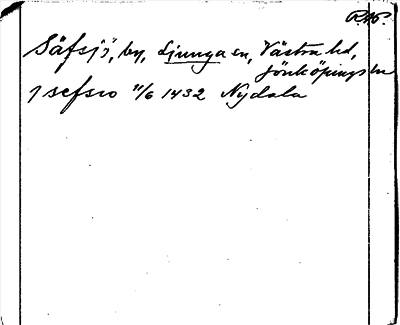 P.W.P.
Säfsjö, by, Ljunga sn, Västra hd,
Jönköpings län
j sefsio 11/6 1432 Nydala